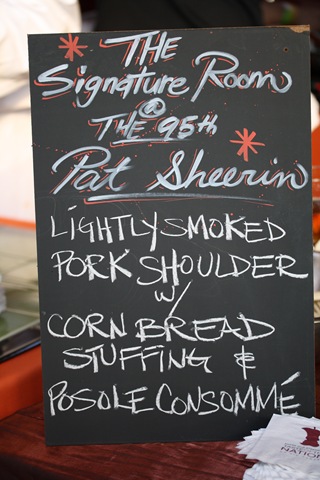 THE
Signature Room
@
THE 95th
Pat Sheerin
LIGHTLY SMOKED
PORK SHOULDER
w/
CORN BREAD
STUFFING &
POSOLE CONSOMMÉ